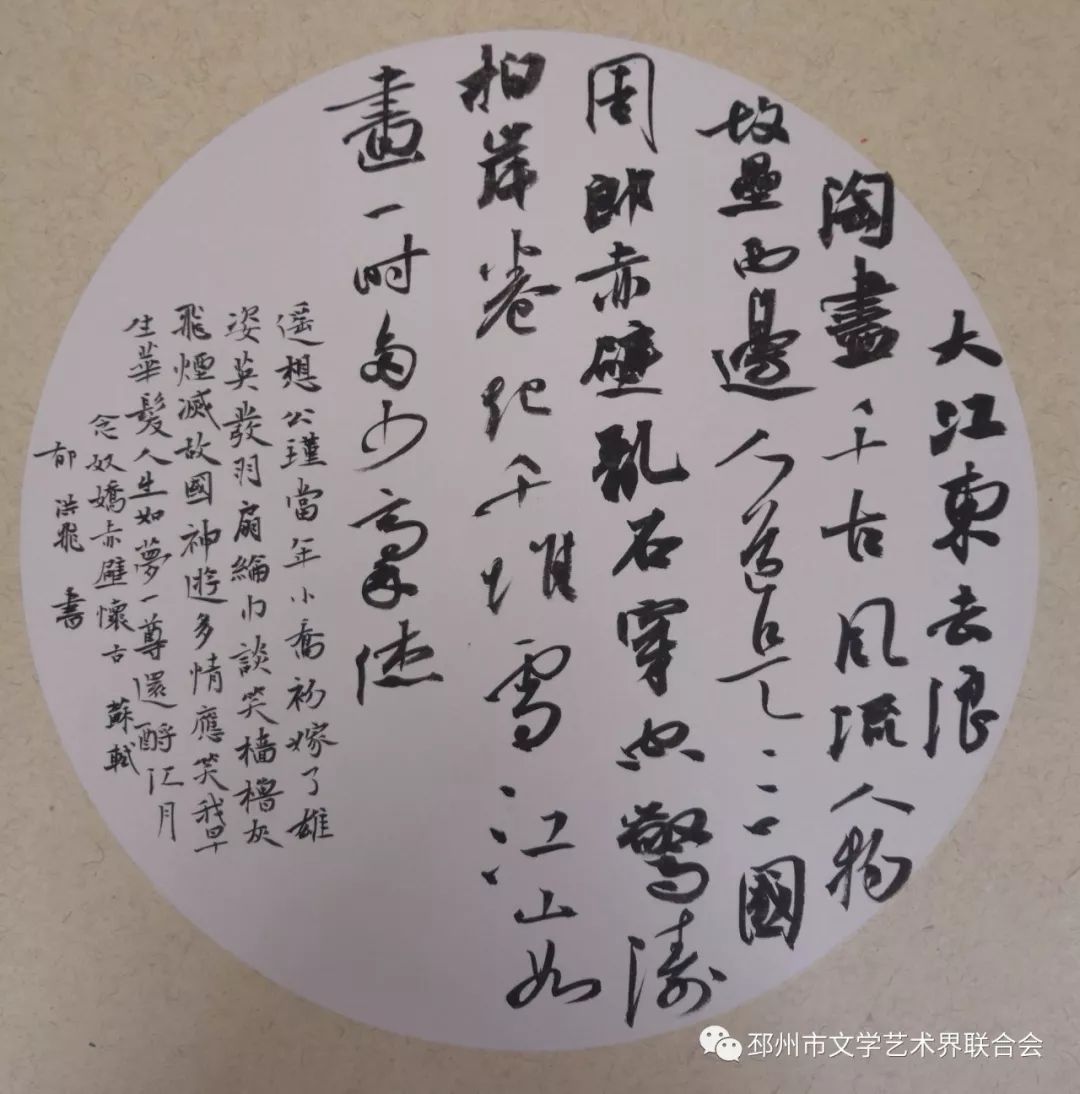 大江東去浪
淘盡千古風流人物
故壘西邊人道是三國
周郎赤壁亂石穿空驚濤
拍岸卷起千堆雪江山如
畫一時多少豪傑
遥想公瑾當年小喬初嫁了雄
姿英發羽扇綸巾談笑檣櫓灰
飛煙滅故國神遊多情應笑我早
生華髮人生如夢一尊還酹江月
念奴嬌赤壁懷古 蘇軾
郁洪飛 書
邳州市文学艺术界联合会